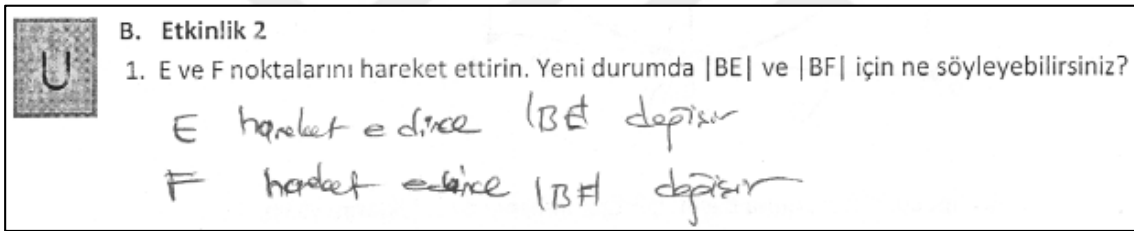 U
B. Etkinlik 2
1. E ve F noktalarını hareket ettirin. Yeni durumda |BE| ve |BF| için ne söyleyebilirsiniz?
E hareket edince |BE| değişir
F hareket edince |BF| değişir